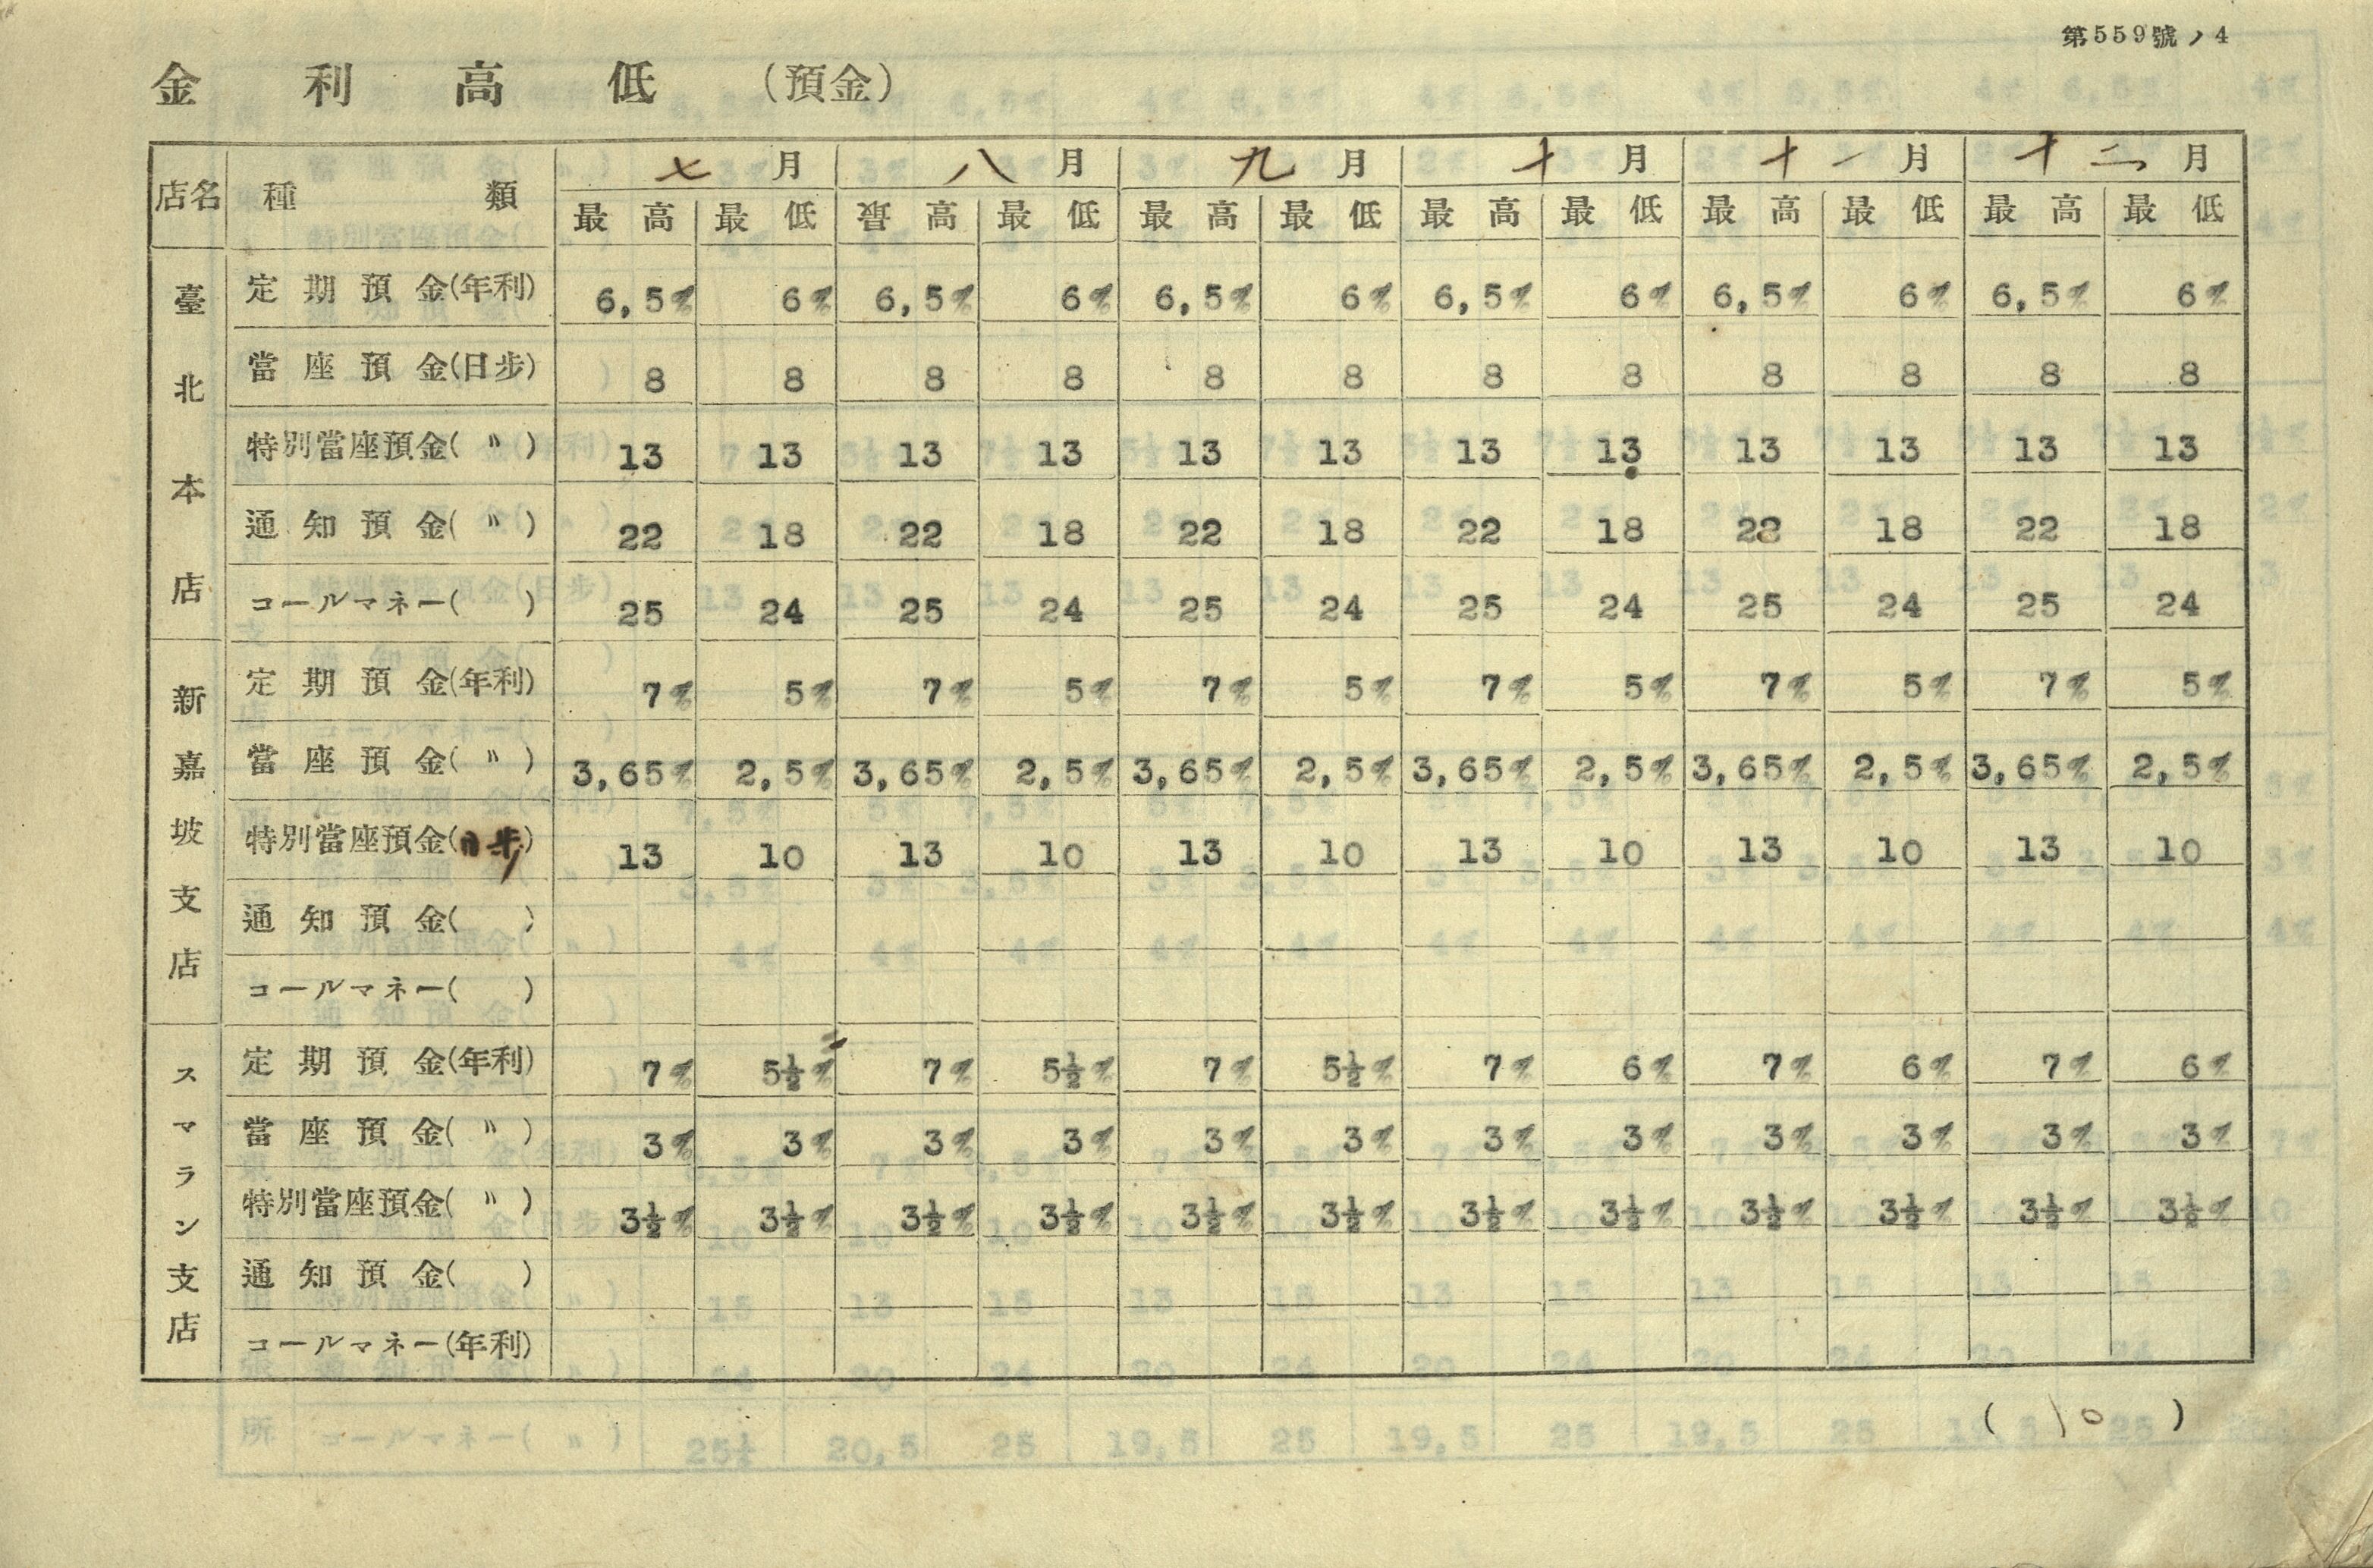 第559號ノ4
金利高低 (預金)
店名 種類 七月 八月 九月 十月 十一月 十二月
最高 最低 最高 最低 最高 最低 最高 最低 最高 最低 最高 最低
臺北本店
定期預金(年利) 6,5% 6% 6,5% 6% 6,5% 6% 6,5% 6% 6,5% 6% 6,5% 6%
當座預金(日步) 8 8 8 8 8 8 8 8 8 8 8 8
特別當座預金(〃) 13 13 13 13 13 13 13 13 13 13 13 13
通知預金(〃) 22 18 22 18 22 18 22 18 22 18 22 18
コールマネー( ) 25 24 25 24 25 24 25 24 25 24 25 24
新嘉坡支店
定期預金(年利) 7% 5% 7% 5% 7% 5% 7% 5% 7% 5% 7% 5%
當座預金(〃) 3,65% 2,5% 3,65% 2,5% 3,65% 2,5% 3,65% 2,5% 3,65% 2,5% 3,65% 2,5%
特別當座預金(日步) 13 10 13 10 13 10 13 10 13 10 13 10
通知預金( )
コールマネー( )
スマラン支店
定期預金(年利) 7% 5½% 7% 5½% 7% 5½% 7% 6% 7% 6% 7% 6%
當座預金(〃) 3% 3% 3% 3% 3% 3% 3% 3% 3% 3% 3% 3%
特別當座預金(〃) 3½% 3½% 3½% 3½% 3½% 3½% 3½% 3½% 3½% 3½% 3½% 3½%
通知預金( )
コールマネー(年利)
(10)